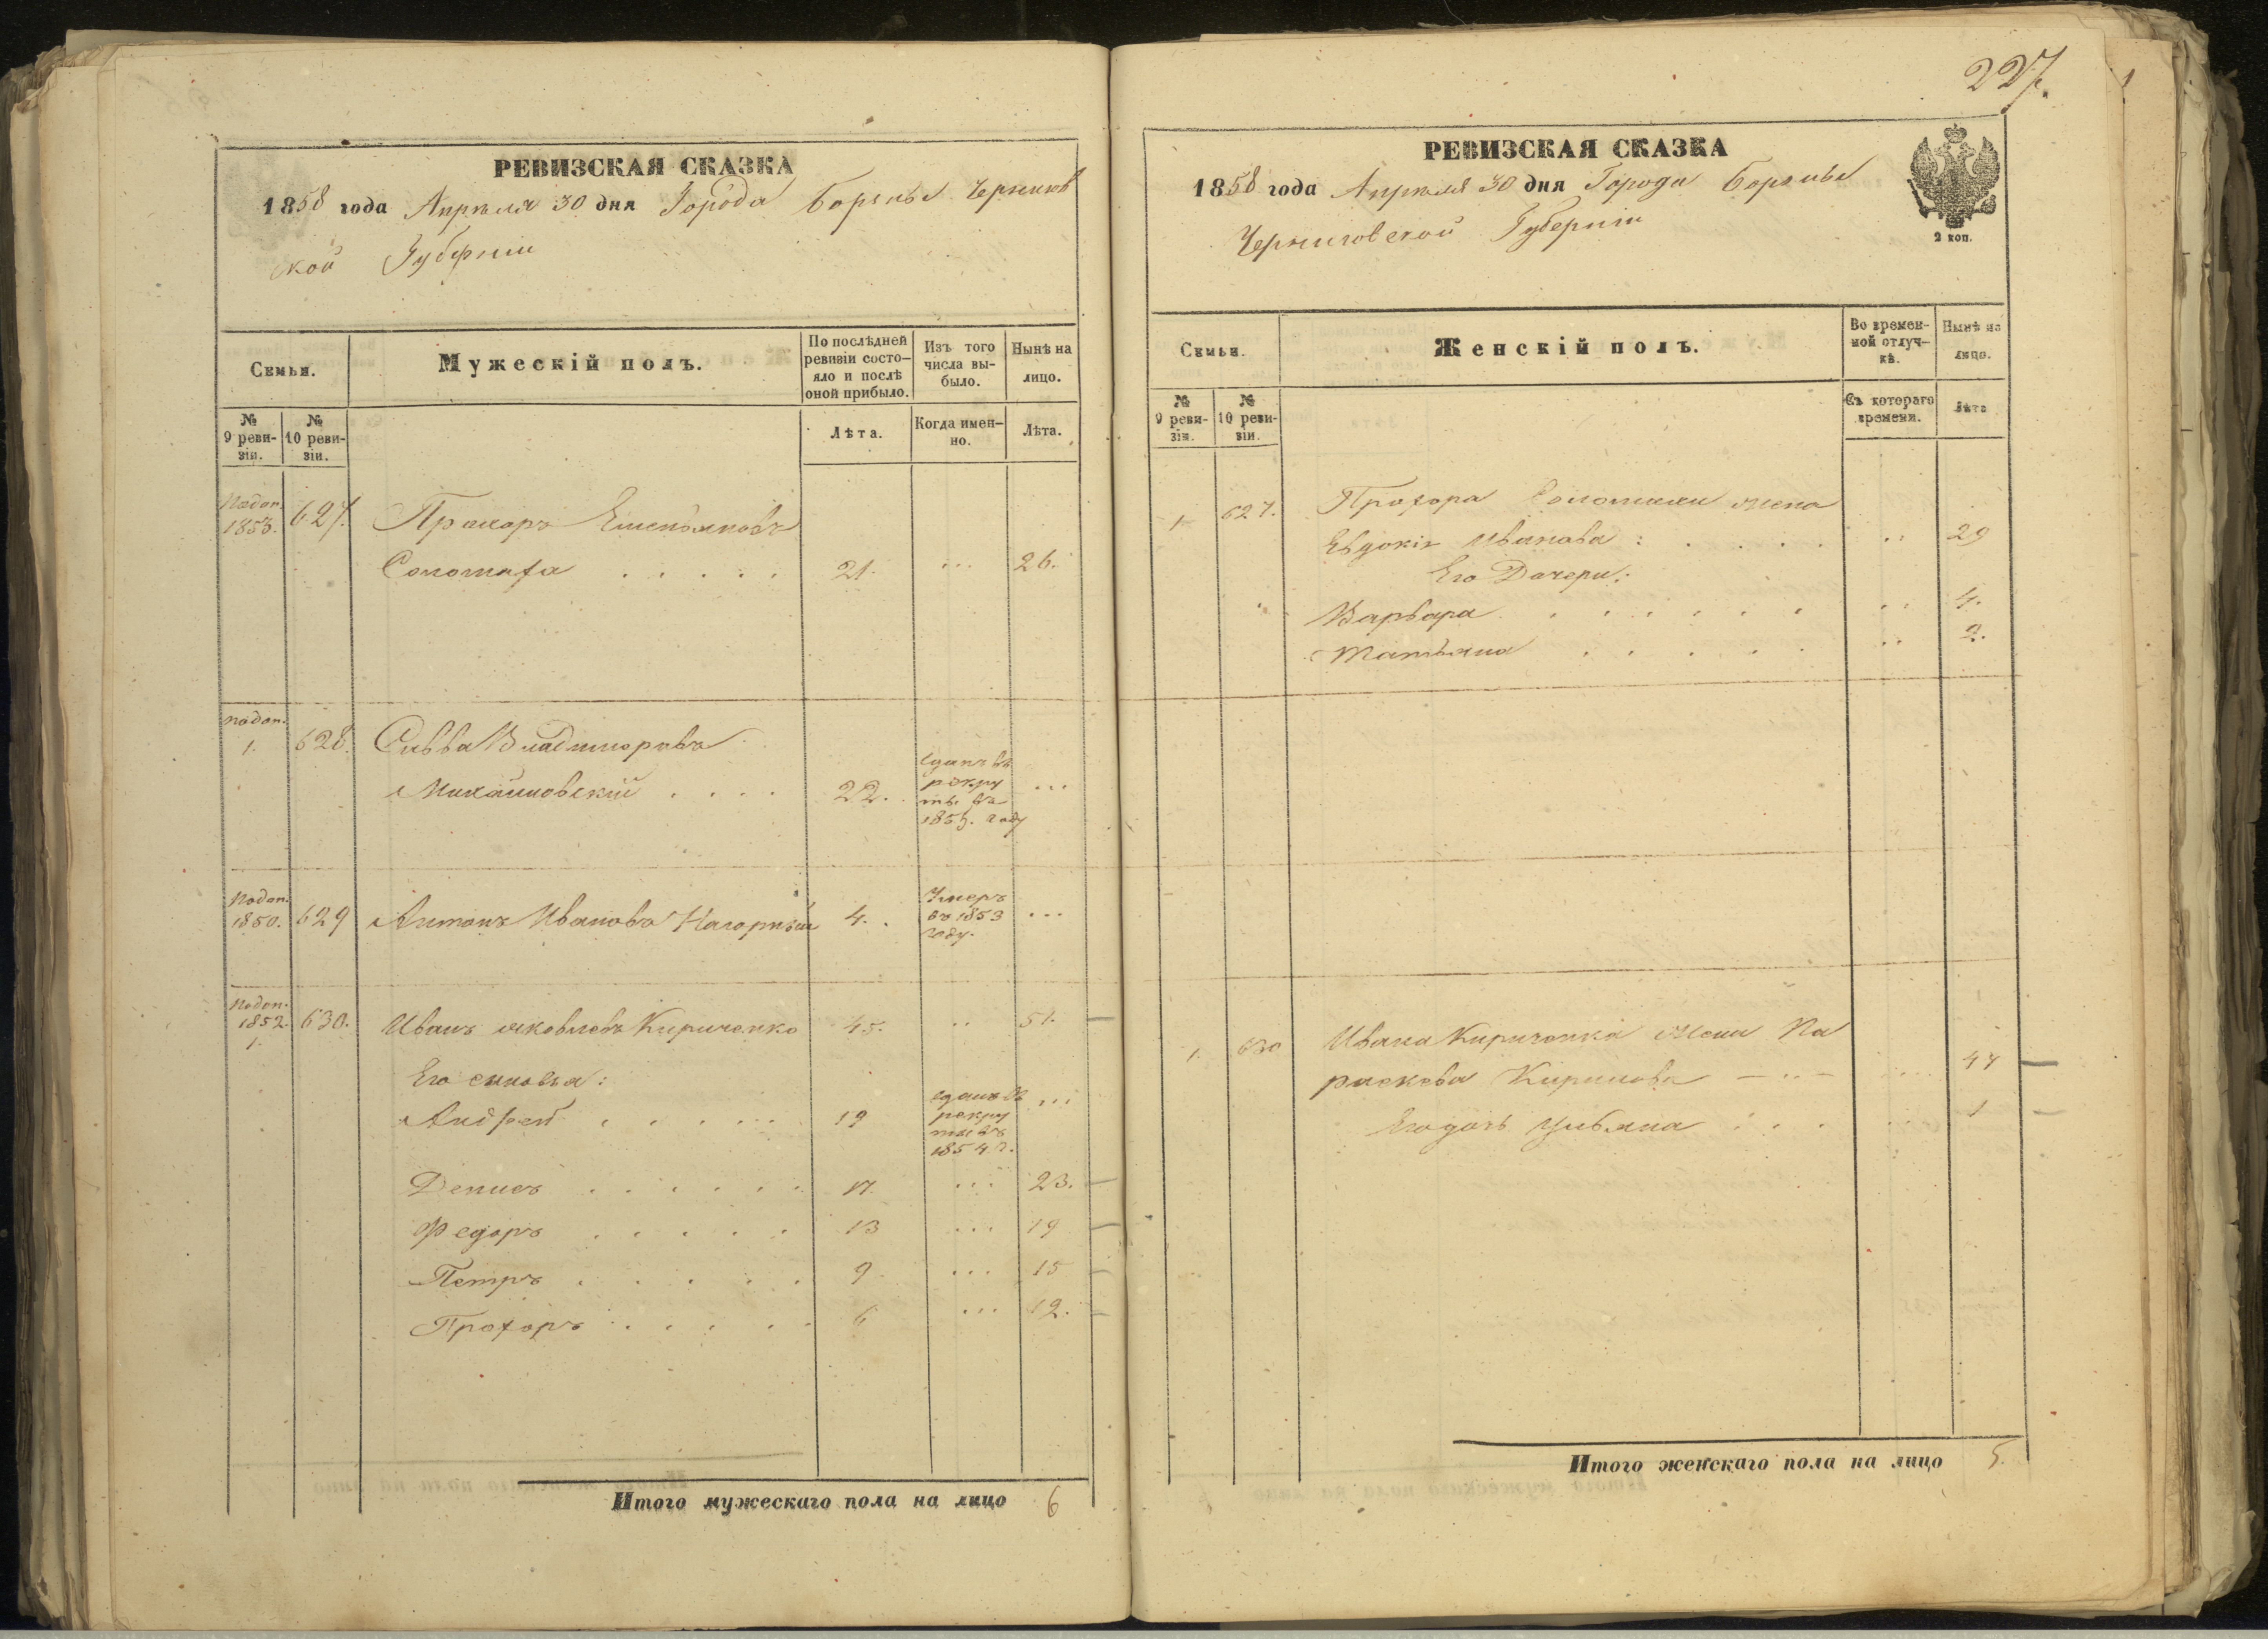 227.
РЕВИЗСКАЯ СКАЗКА
1858 года Апреля 30 дня Города Борзны Чернигов
ской Губернии
Семьи.
Мужескій полъ.
По послѣдней ревизіи состо-
яло и послѣ
оной прибыло.
Изъ того
числа вы-
было.
Нынѣ на
лицо.
№
9 реви-
зіи.
№
10 реви-
зіи.
Лѣта.
Когда имен-
но.
Лѣта.
1853. 627.
21. ... 26.
1. 628. Савва
Михайловскій . . . . 22. ...
сданъ въ
рекру
ты въ
году
1850. 629 Антонъ Ивановъ Нагорный 4. ...
Умеръ
въ 1853
году.
1852. 630. Иванъ Яковлевъ Кириченко 45. .. 51.
1.
Его сыновья:
Андрей . . . . . 19 ...
сданъ въ
рекру
ты въ
1854 г.
Денисъ . . . . . . 17. ... 23.
Федоръ . . . . . 13 ... 19
Петръ . . . . . 9 ... 15
Прохоръ . . . . . 6 ... 12.
Итого мужескаго пола на лицо 6
РЕВИЗСКАЯ СКАЗКА
1858 года Апреля 30 дня Города Борзны
Черниговской Губернии
2 коп.
Семьи.
Женскій полъ.
Во времен-
ной отлуч-
кѣ.
Нынѣ на
лицо.
№
9 реви-
зіи.
№
10 реви-
зіи.
Съ котораго
времени.
Лѣта
1 627. Прохора жена
Евдокія Иванова : . . . . .. 29
Его Дочери:
Варвара . . . . . . .. 4.
Татьяна . . . . . .. 2.
1. 630 Ивана Кириченка жена Па
раскева Кирилова ... 44
Его дочь Ульяна : . . ... 1
Итого женскаго пола на лицо 5.